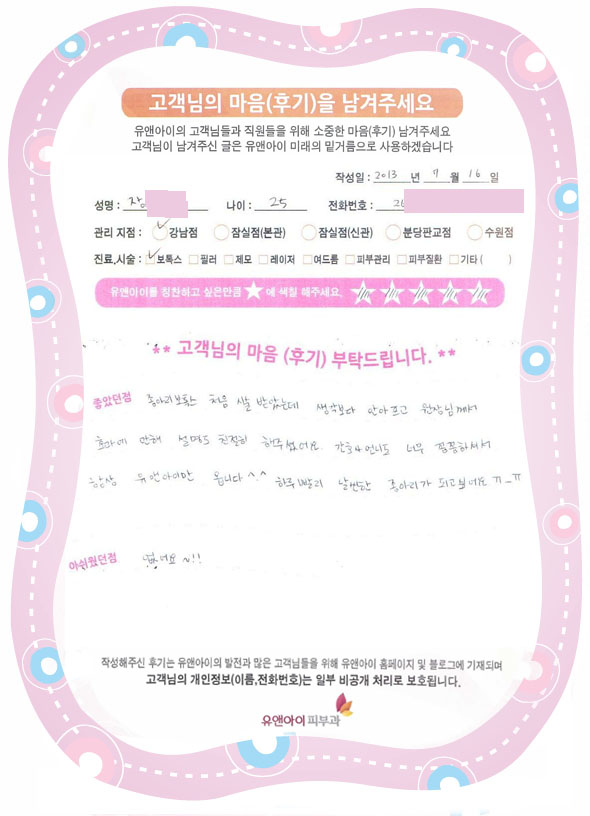 고객님의 마음(후기)을 남겨주세요
유앤아이의 고객님들과 직원들을 위해 소중한 마음(후기) 남겨주세요
고객님이 남겨주신 글은 유앤아이 미래의 밑거름으로 사용하겠습니다
작성일 : 2013 년 7 월 16 일
성명 : 장 나이 : 25 전화번호 :
관리 지점 : 강남점 잠실점(본관) 잠실점(신관) 분당판교점 수원점
진료,시술 : 보톡스 필러 제모 레이저 여드름 피부관리 피부질환 기타 ( )
유앤아이를 칭찬하고 싶은만큼 ★ 에 색칠 해주세요.
** 고객님의 마음 (후기) 부탁드립니다. **
좋았던점 종아리보톡스 처음 맞 받았는데 생각보다 안아프고 원장님께서
효과에 대해 설명도 친절히 해주셨어요. 간호사 언니도 너무 꼼꼼하셔서
항상 유앤아이만 옵니다 ^.^ 하루빨리 날씬한 종아리가 되고싶어요 ㅠ_ㅠ
아쉬웠던점 없어요 ~!!
작성해주신 후기는 유앤아이의 발전과 많은 고객님들을 위해 유앤아이 홈페이지 및 블로그에 기재되며
고객님의 개인정보(이름,전화번호)는 일부 비공개 처리로 보호됩니다.
유앤아이 피부과